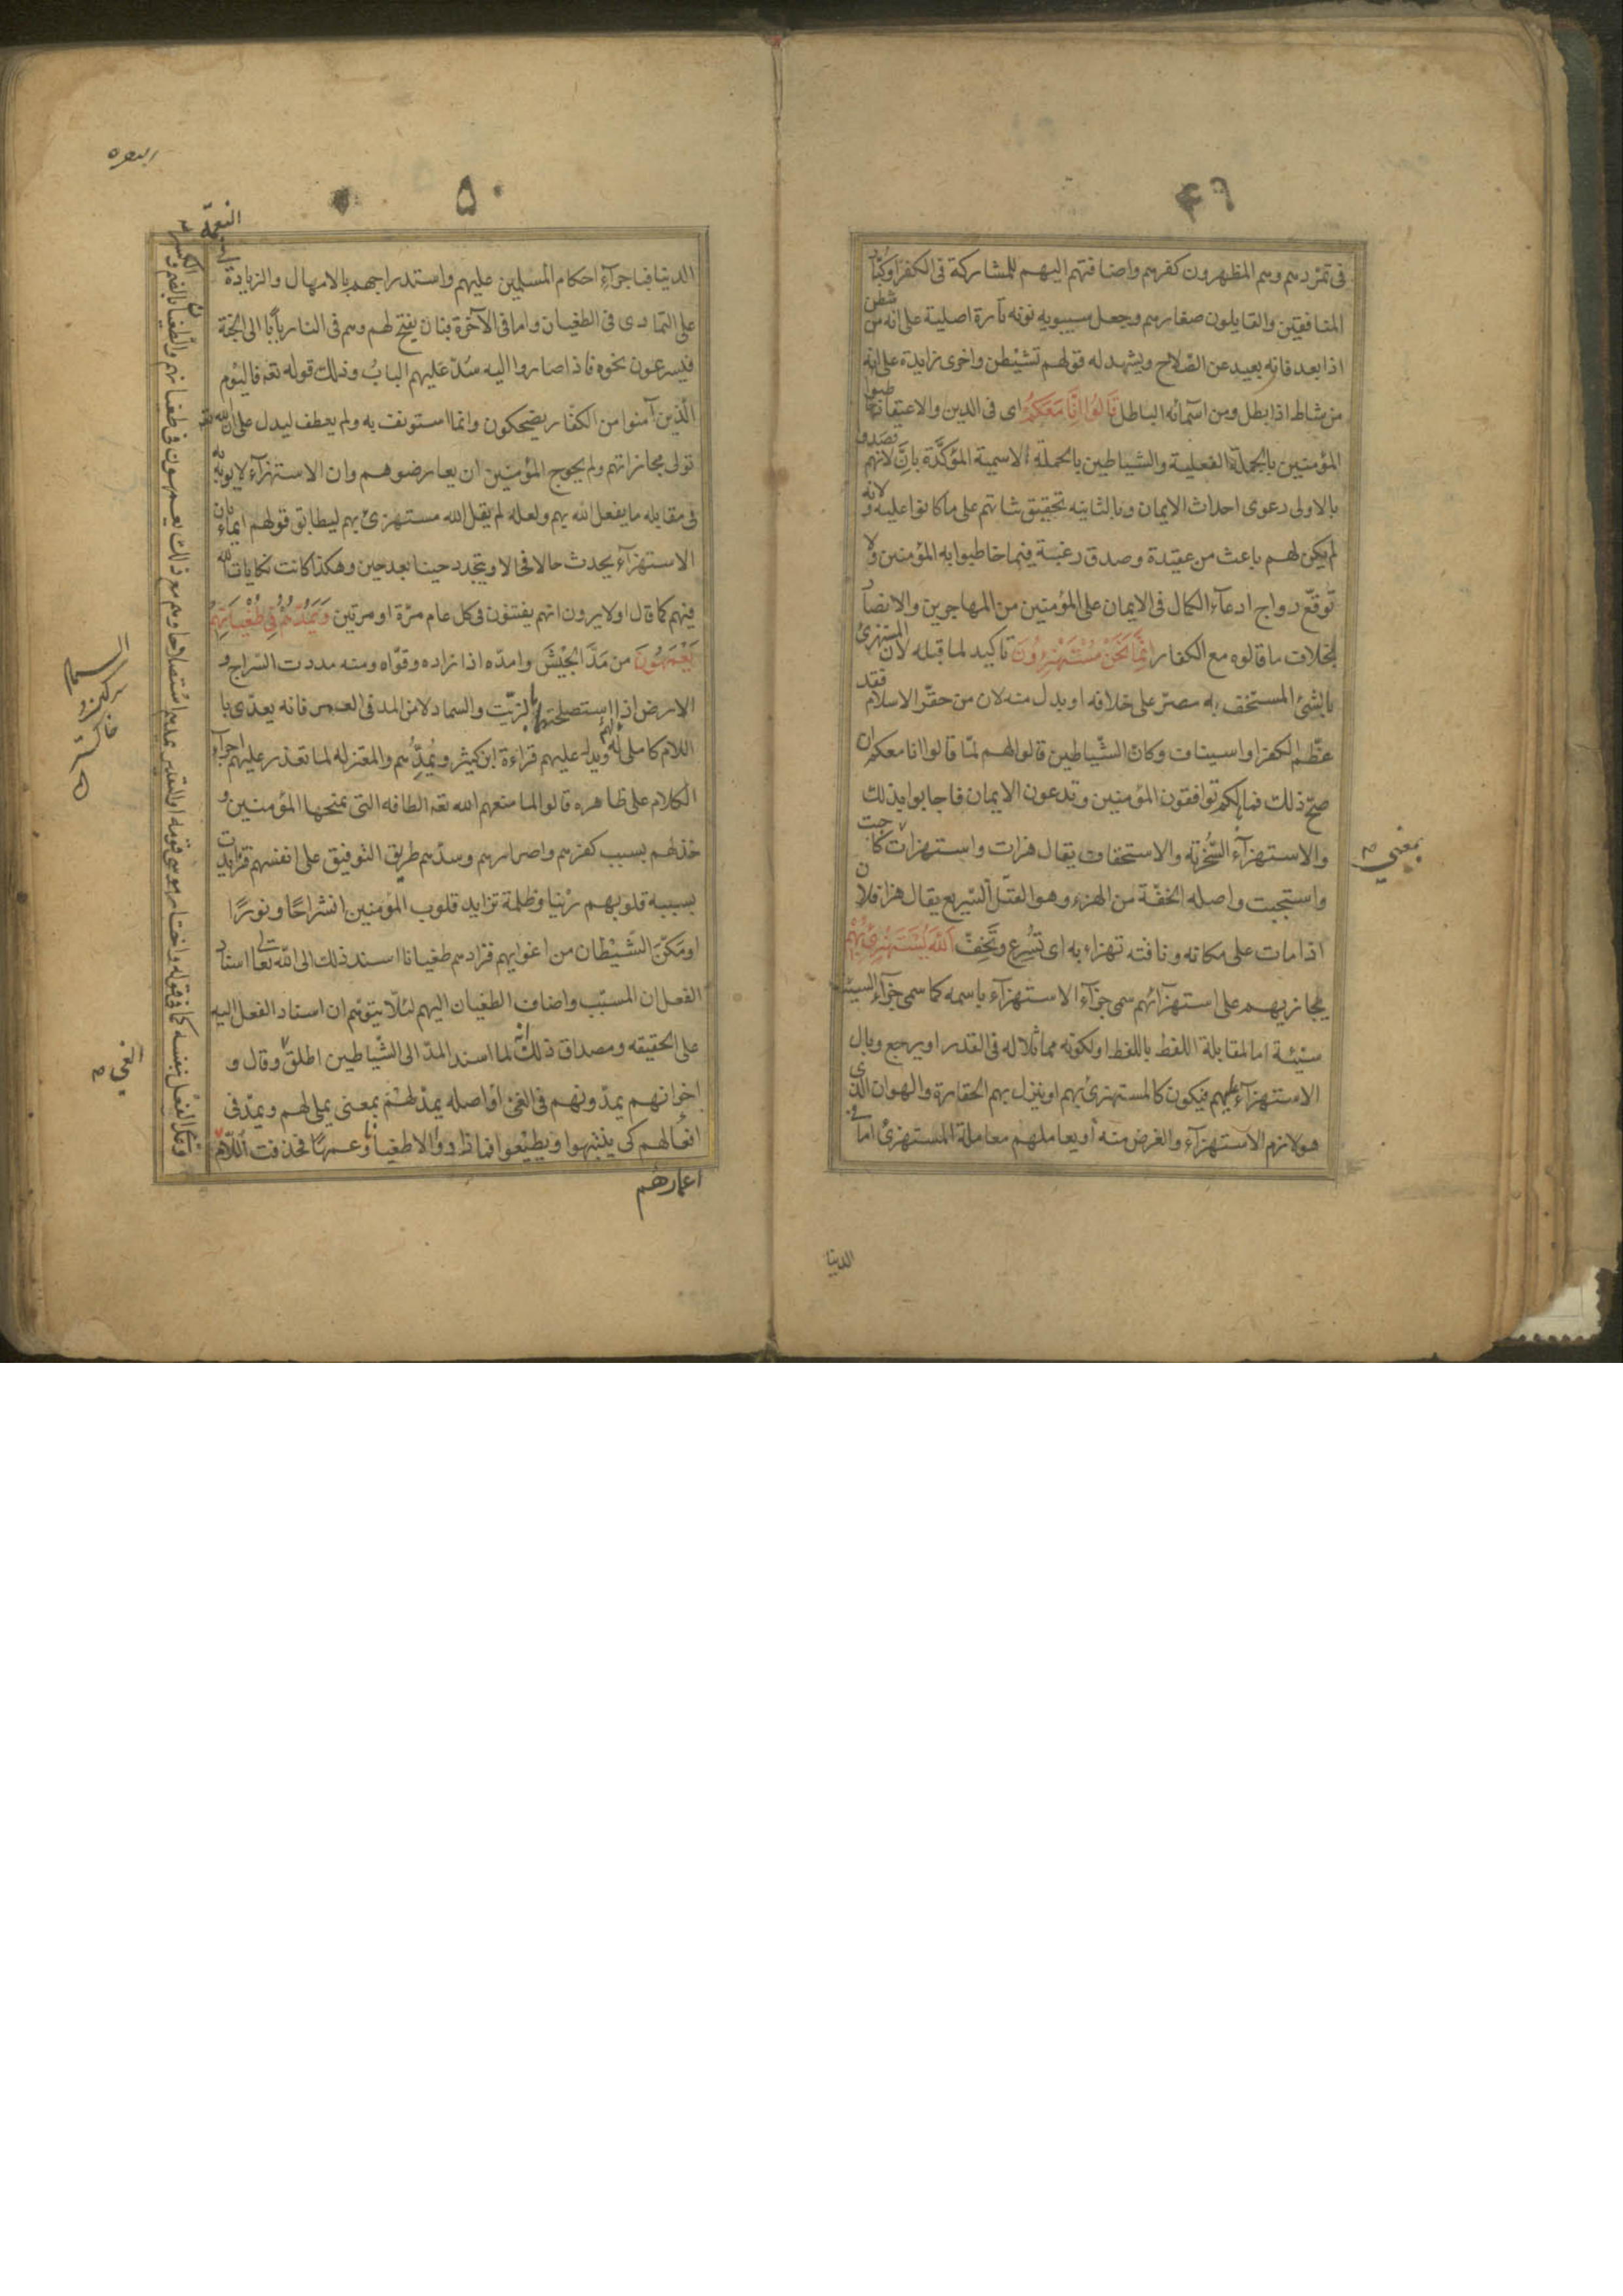 ٤٩
فى تمردهم وهم المظهرون كفرهم واضافتهم اليهم للمشاركة فى الكفر او كبار
المنافقين والقايلون صغارهم وجعل سيبويه نونه تارة اصلية على انه من شطن
اذا بعد فانه بعيد عن الصّلاح ويشهد له قولهم تشيطن واخرى زايدة على انه
من شاط اذا بطل ومن اسمائه الباطل قَالُوا اِنَّا مَعَكُمْ اى فى الدين والاعتقاد خاطبوا
المؤمنين بالجملة الفعلية والشياطين بالجملة الاسمية المؤكّدة بانّ لانهم قصدوا
بالاولى دعوى احداث الايمان وبالثانيه تحقيق ثباتهم على ما كانوا عليه ولانه
لم يكن لهم باعث من عقيدة وصدق رغبة فيما خاطبوا به المؤمنين ولا
توقّع رواج ادعآء الكمال فى الايمان على المؤمنين من المهاجرين والانصار
بخلاف ما قالوه مع الكفار اِنَّمَا نَحْنُ مُسْتَهْزِؤُنَ تاكيد لما قبله لان المستهزئ
بالشئ المستخف به مصرّ على خلافه او بدل منه لان من حقّر الاسلام فقد
عظّم الكفر او استيناف وكان الشّياطين قالوا لهم لمّا قالوا انا معكم ان
صحّ ذلك فما لكم توافقون المؤمنين وتدعون الايمان فاجابوا بذلك
والاستهزآء السّخرية والاستخفاف يقال هزات واستهزات كاجبت
بمعنى
واستجبت واصله الخفّة من الهزء وهو القتل السّريع يقال هزا فلان
اذا مات على مكانه وناقته تهزاء به اى تسْرع وتَخِفّ اَللّهُ يَسْتَهْزِئُ بِهِمْ
يجازيهم على استهزآئهم سمى جزآء الاستهزآء باسمه كما سمى جزآء السيئة
سيّئة اما لمقابلة اللفظ باللفظ او لكونه مماثلا له فى القدر او يرجع وبال
الاستهزآء عليهم فيكون كالمستهزئ بهم او ينزل بهم الحقارة والهوان الذى
هو لازم الاستهزآء والغرض منه او يعاملهم معاملة المستهزئ اما فى
الدنيا
البقره
٥٠
الدنيا فباجرآء احكام المسلمين عليهم واستدراجهم بالامهال والزيادة فى النعمة
على التمادى فى الطغيان واما فى الآخرة فبان يفتح لهم وهم فى النار بابًا الى الجنة
فيسرعون نحوه فاذا صاروا اليه سُدّ عليهم البابُ وذلك قوله تعه فاليوم
الّذين آمنوا من الكفّار يضحكون وانما استونف به ولم يعطف ليدل على ان الله تعه
تولى مجازاتهم ولم يحوج المؤمنين ان يعارضوهم وان الاستهزآء لا يوبه به
فى مقابله ما يفعل الله بهم ولعله لم يقل الله مستهزئ بهم ليطابق قولهم ايماءً بان
الاستهزآء يحدث حالا فحالا ويتجدد حينا بعد حين وهكذا كانت نكايات الله
فيهم كما قال اولا يرون انهم يفتنون فى كل عام مرّة او مرتين وَيَمُدُّهُمْ فِى طُغْيَانِهِمْ
يَعْمَهُونَ من مَدّ الجيْشَ وامدّه اذا زاده وقوّاه ومنه مددت السّراج و
الارض اذا استصلحتهما بالزيّت والسماد لا من المد فى العمر فانه يعدّى با
اللام كاملى له ويدل عليهم قراءة ابن كثير ويُمِدُّهم والمعتزله لما تعذر عليهم اجراء
الكلام على ظاهره قالوا لما منعهم الله تعه الطافه التى يمنحها المؤمنين و
خذلهم بسبب كفرهم واصرارهم وسدّهم طريق التوفيق على انفسهم فتزايدت
بسببه قلوبهم رَيْنا وظلمة تزايد قلوب المؤمنين انشراحًا ونورًا
او مَكّن الشَيْطان من اغوايهم فزادهم طغيانا اسند ذلك الى اللّه تعالى اسناد
الفعل ان المسبّب واضاف الطغيان اليهم لئلّا يتوهّم ان اسناد الفعل اليه
على الحقيقه ومصداق ذلك انه لما اسند المدّ الى الشّياطين اطلق وقال و
الغى
اخوانهم يمدّونهم فى الغىّ او اصله يمدّ لهُمْ بمعنى يملى لهم ويمدّ فى
افعالهم كى ينتبهوا ويطيْعوا فما زادوا الا طغيانًا وعمهًا فحذفت اللّام
اعمارهم
وعدى الفعْل بنفسه كما فى قوله واختار موسى قومه او التقدير يمدهم استصلاحا وهم مع ذلك يعمهون فى طغيانهم والطّغيان بالضم والكسر
السماد
سركين و
خاكستر